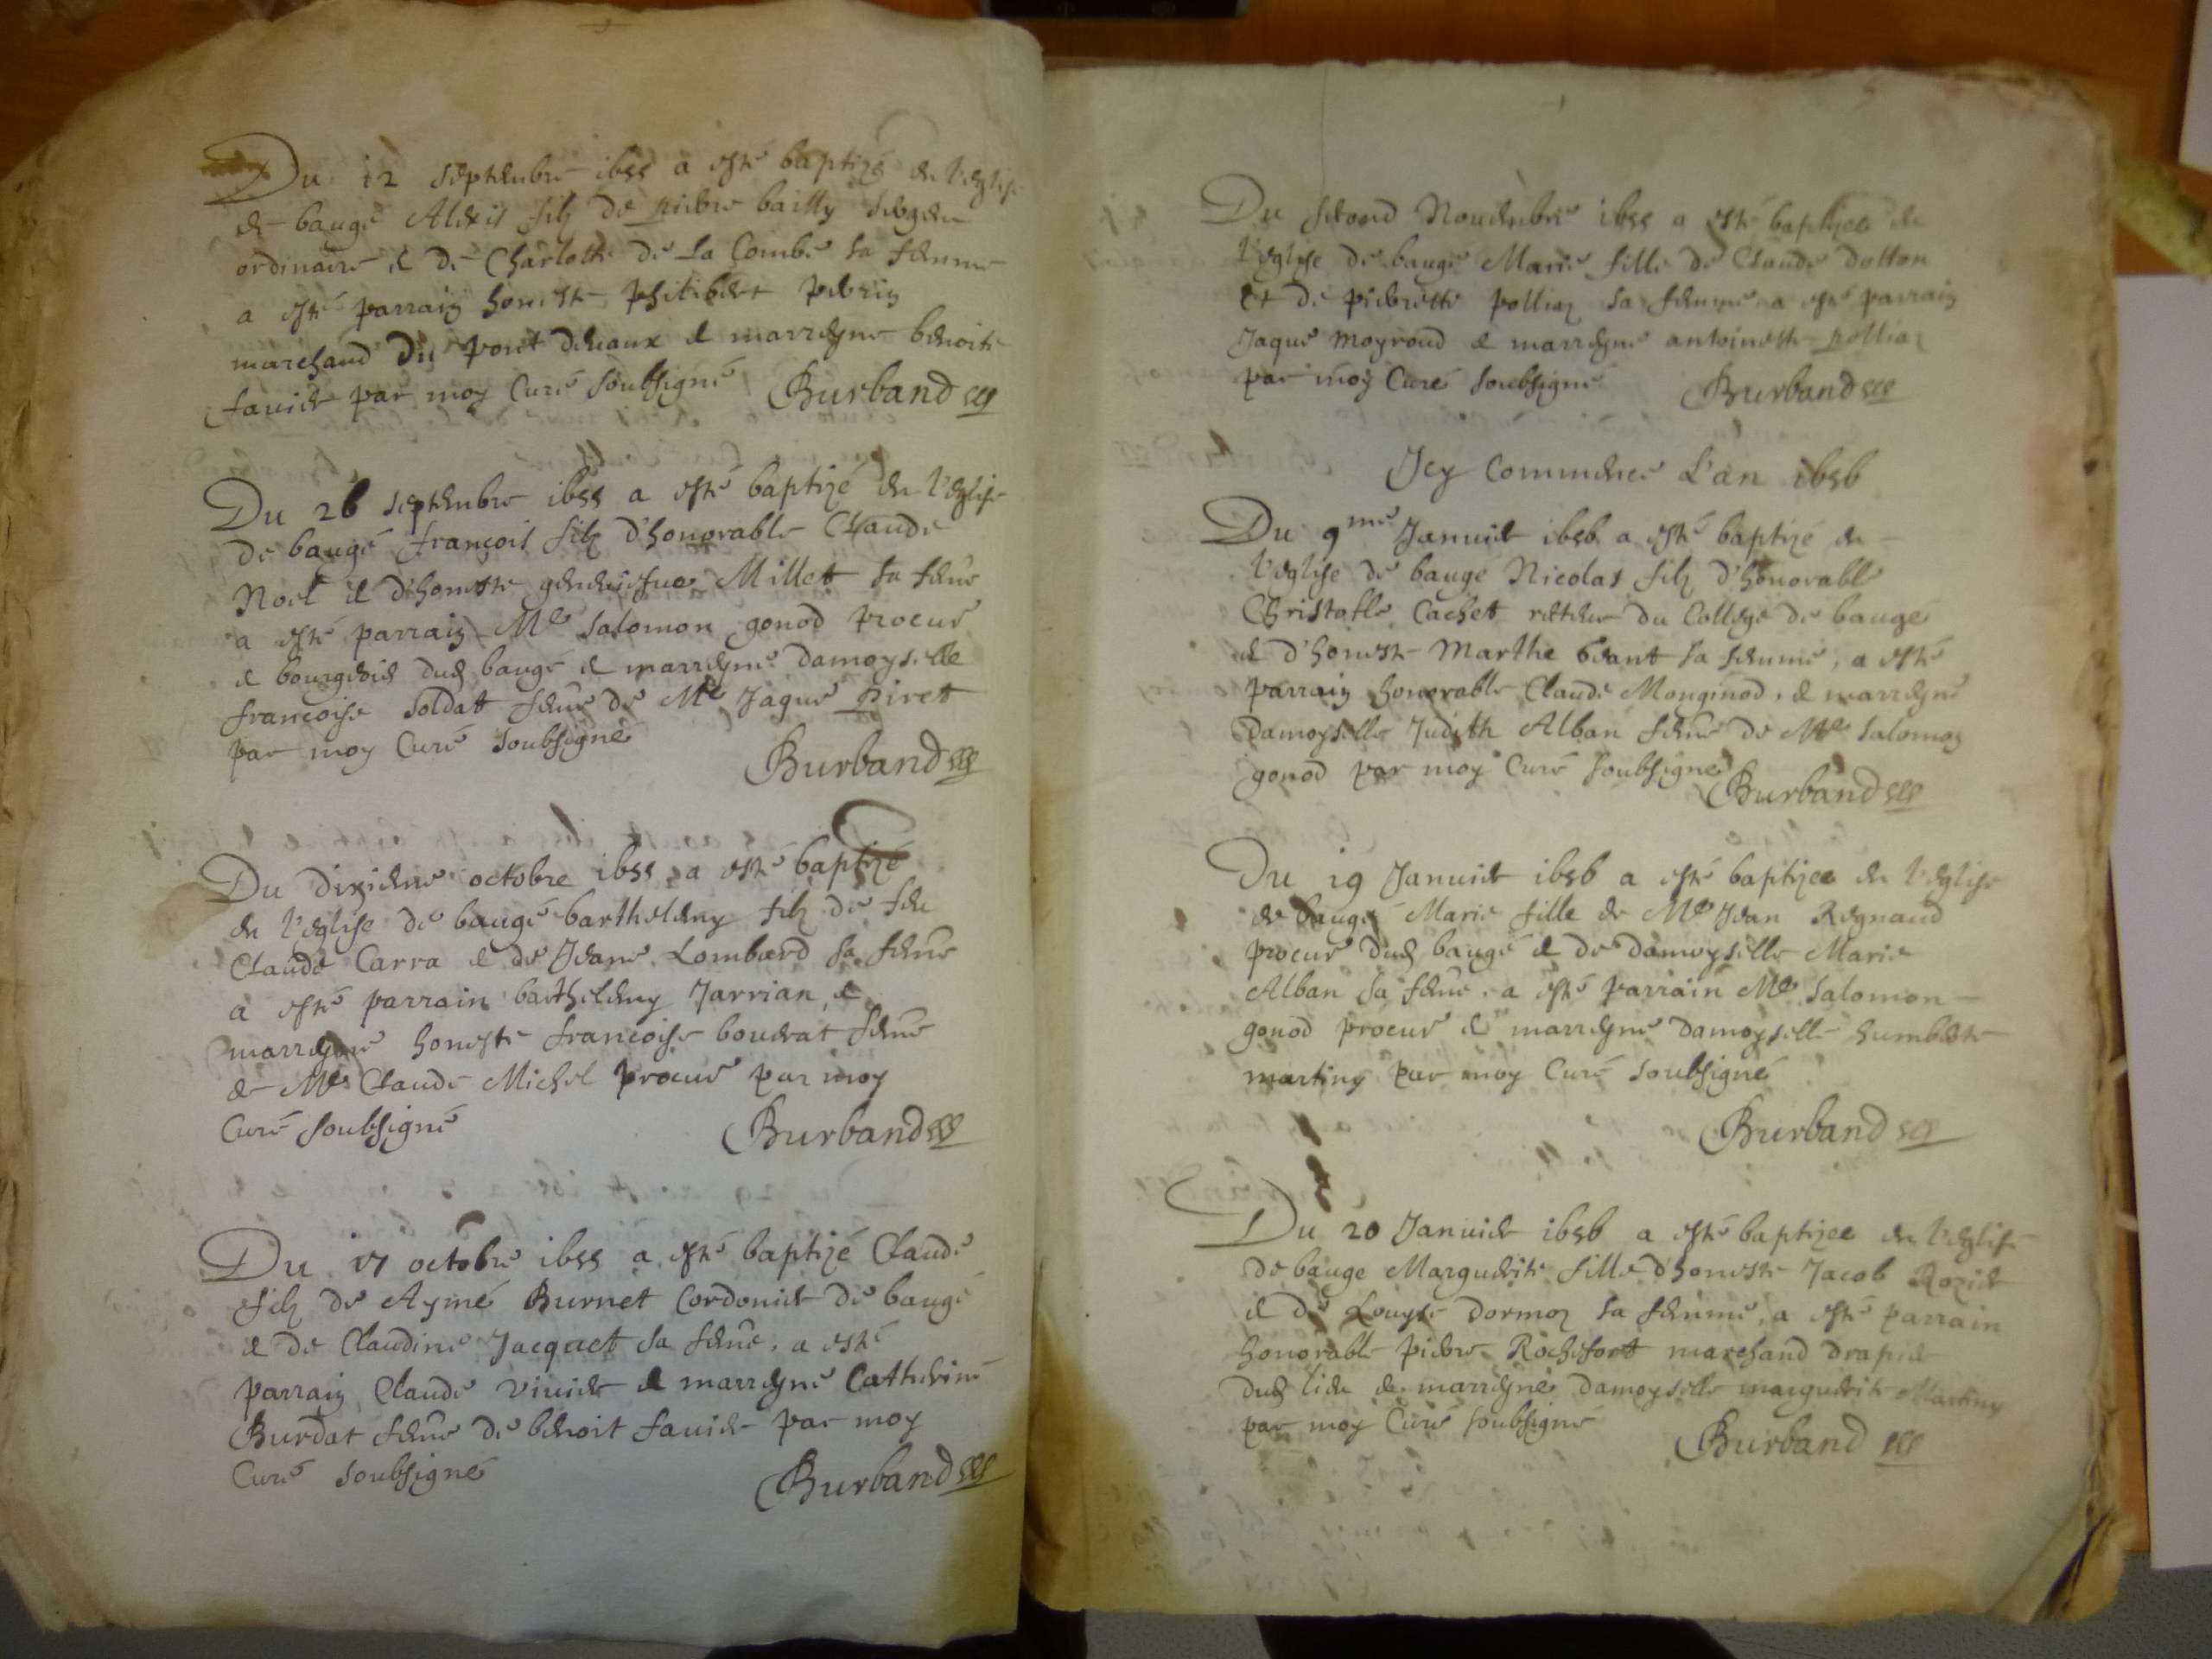 Du 12 septembre 1655 a esté baptizé en l'eglise
de baugé Alexis filz de pierre bailly sergen
ordinaire et de Charlotte de La Combe sa femme
a esté parrain honeste philibert perrin
marchand du pont devaux et marreyne benoite
favier par moy Curé soubsigné Burband
Du 26 septembre 1655 a esté baptizé en l'eglise
de baugé françois filz d'honorable Claude
Noel et d'honeste Millet sa feme
a esté parrain Me Salomon gonod procur
et bourgeois dud baugé et marreyne damoyselle
françoise soldat feme de Me Jaque piret
par moy Curé soubsigné
Burband
Du dixieme octobre 1655 a esté baptizé
en l'eglise de baugé barthelemy filz de feu
Claude Carra et de Jeane Lombard sa feme
a esté parrain barthelemy Jarrian, et
marreyne honeste françoise bouvrat feme
de Me Claude Michel procur par moy
Curé soubsigné Burband
Du 17 octobre 1655 a esté baptizé Claude
filz de Aymé Burnet Cordonier de baugé
et de Claudine Jacquet sa feme, a esté
parrain Claude vivier et marreyne Catherine
Burdat feme de benoit favier par moy
Curé soubsigné Burband
Du second Novembre 1655 a esté baptizee en
l'eglise de baugé Marie fille de Claude dotton
et de pierrette polliaz sa femme a esté parrain
Jaque moyroud et marreyne antoineste polliaz
par moy Curé soubsigné Burband
Icy Commence L'an 1656
Du 9me Janvier 1656 a esté baptizé en
l'eglise de bauge Nicolas filz d'honorable
Christofle Cachet retteur du College de baugé
et d'honeste Marthe beant sa femme, a esté
parrain honorable Claude Monginod, et marreyne
Damoyselle Judith Alban feme de Me Salomon
gonod par moy Curé soubsigné
Burband
Du 19 Janvier 1656 a esté baptizee en l'eglise
de baugé Marie fille de Me Jean Regnaud
procur dud baugé et de damoyselle Marie
Alban sa feme, a esté parrain Me Salomon
gonod procur et marreyne damoyselle humberte
martiny par moy Curé soubsigné
Burband
Du 20 Janvier 1656 a esté baptizee en l'eglise
de bauge Marguerite fille d'honeste Jacob Rozier
et de Louyse dormoz sa femme, a esté parrain
honorable pierre Rochefort marchand drapier
dud lieu et marreyne damoyselle marguerite Martiny
par moy Curé soubsigné
Burband